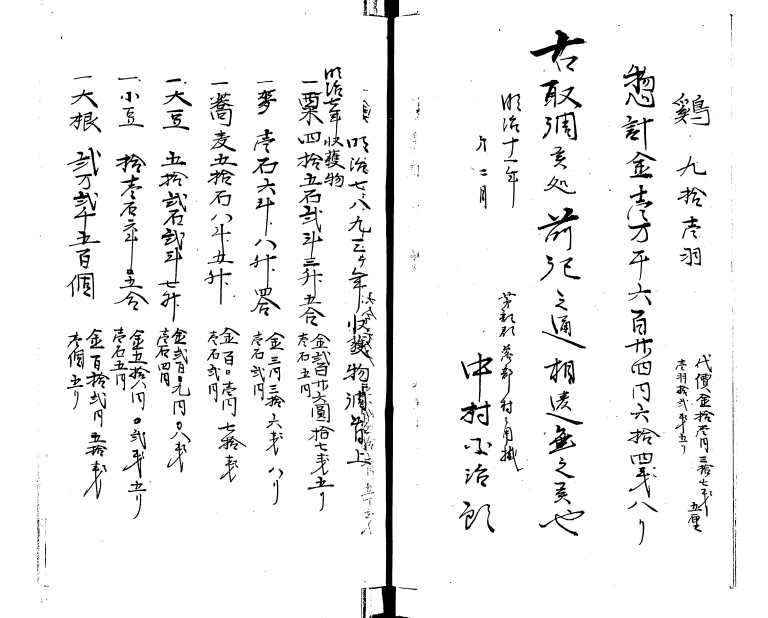 鷄 九拾壱羽
代價金拾壱円三拾七戋五厘
壱羽拾弐戋五り
惣計金壱万千六百廿四円六拾四戋八り
右取調候処前記之通相違無之候也
明治十一年
十二月
中村
明治七八九三ヶ年収獲物
明治七年収獲物
一粟 四拾五石弐斗三升五合
金弐百廿六圓拾七戋五り
壱石五円
一麥 壱石六斗八升四合
金三円三拾六戋八り
壱石弐円
一蕎麦五拾石八斗五升
金百〇壱円七拾戋
壱石弐円
一大豆 五拾弐石弐斗七升
金弐百〇九円〇八戋
壱石四円
一小豆 拾壱石六斗〇五合
金五拾八円〇弐戋五り
壱石五円
一大根 弐万弐千五百個
金百拾弐円五拾戋
壱個五り